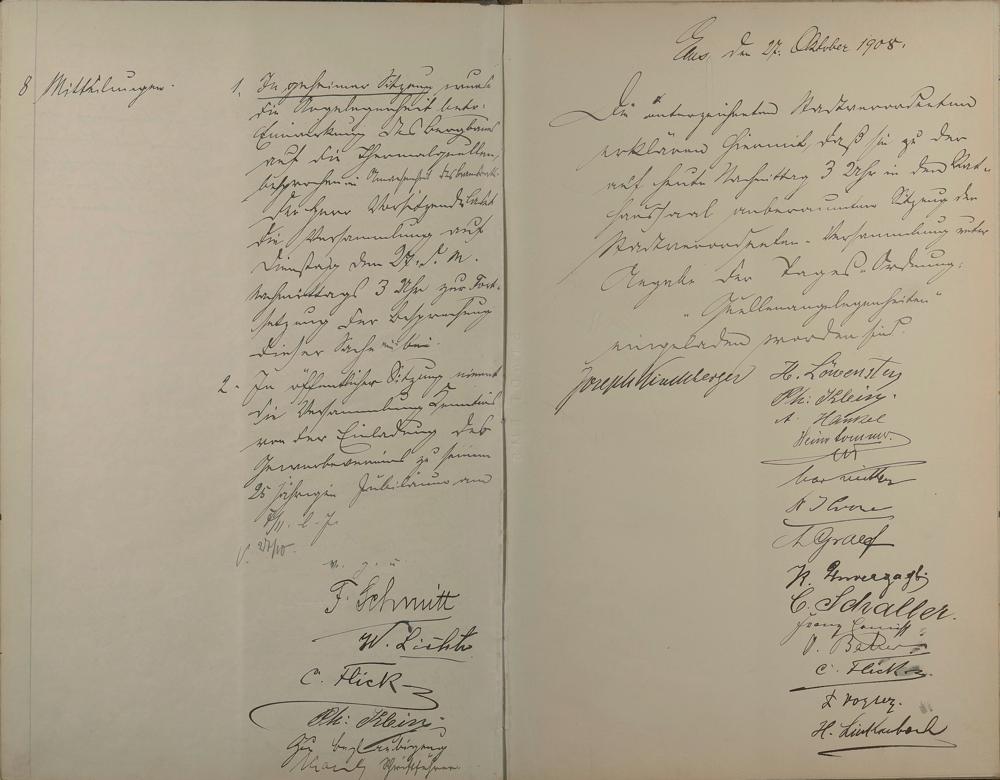 8 Mitteilungen.
1. In geheimer Sitzung wurde
die Angelegenheit betr.
Einwirkung des Bergbaus
auf die Thermalquellen,
besprochen in Anwesenheit
Der Herr Vorsitzende ladet
die Versammlung auf
Dienstag den 27. d. M.
Nachmittags 3 Uhr zur Fort-
setzung der Besprechung
dieser Sache ein.
2. In öffentlicher Sitzung nimmt
die Versammlung Kenntnis
von der Einladung des
Gewerbevereins zu seinem
25 jährigen Jubiläum am
27/10.
v. g. u.
F. Schmitt
W. Licht
C. Flick
Ph: Klein
Zur Beglaubigung
Schriftführer
Ems, den 27. Oktober 1908.
Die unterzeichneten Stadtverordneten
erklären hiermit, daß sie zu der
auf heute Nachmittag 3 Uhr in den Rat-
haussaal anberaumten Sitzung der
Stadtverordneten-Versammlung unter
Angabe der Tages-Ordnung:
"Quellenangelegenheiten"
eingeladen worden sind.
Joseph
H. Löwenstein
Ph: Klein.
A. Hankel
A Graef
K. Unverzagt
C. Schaller.
Franz Schmitt
O. Becker
C. Flick
F. Vogler.
H. Linkenbach